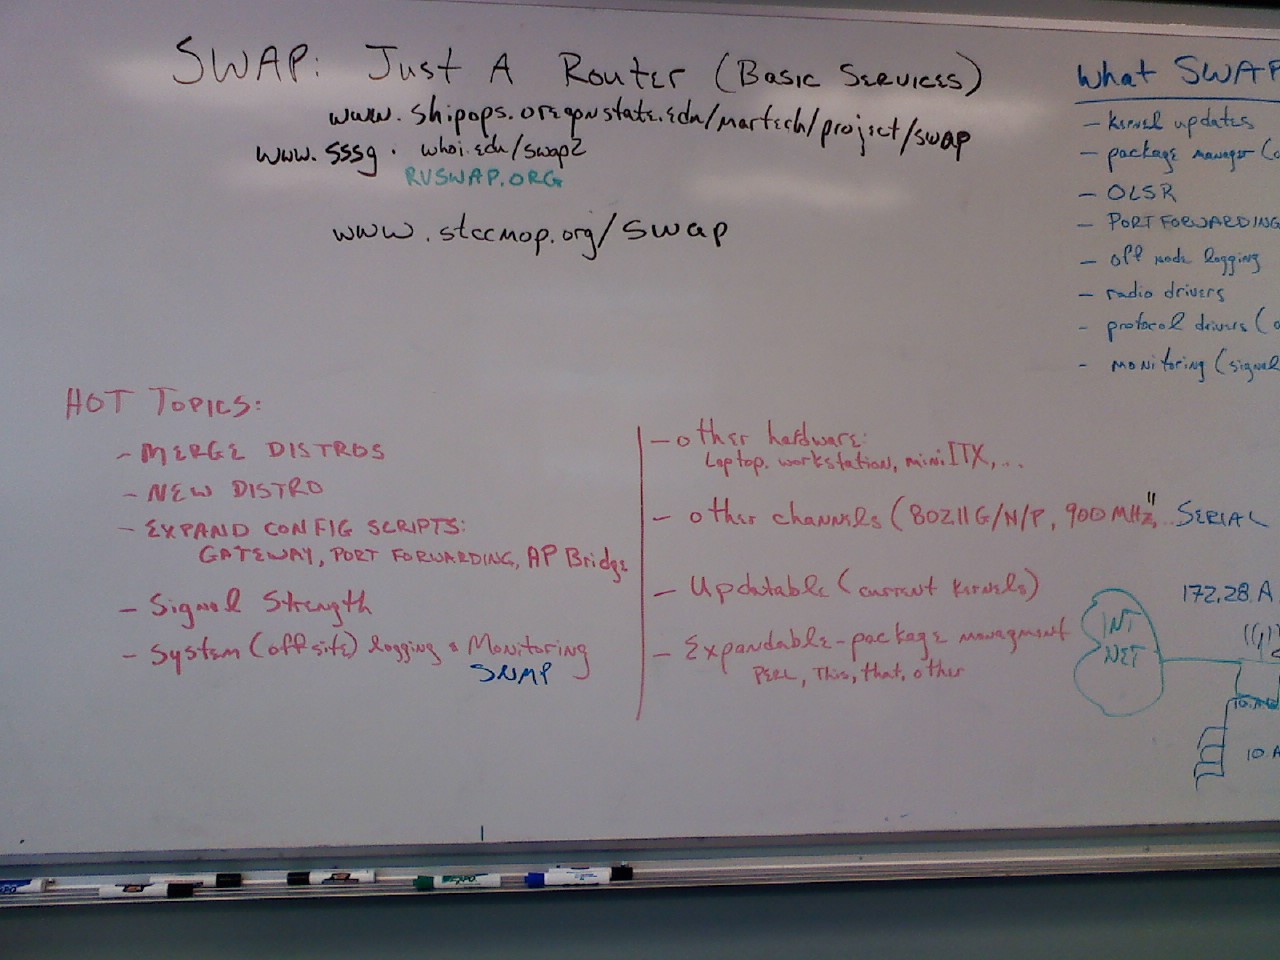 SWAP: Just A Router (Basic Services)
www.shipops.oregonstate.edu/martech/project/swap
www.sssg.whoi.edu/swap2
RVSWAP.ORG
www.stccmop.org/swap
What SWAP
- kernel updates
- package manager (
- OLSR
- PORT FORWARDING
- off node logging
- radio drivers
- protocol drivers (
- monitoring (signal
HOT TOPICS:
- MERGE DISTROS
- NEW DISTRO
- EXPAND CONFIG SCRIPTS:
GATEWAY, PORT FORWARDING, AP Bridge
- Signal Strength
- System (offsite) logging & Monitoring
SNMP
- other hardware:
Laptop, workstation, mini ITX, ...
- other channels (80211G/N/P, 900MHz, " SERIAL
- Updatable (current kernels)
- Expandable - package managment
PERL, This, that, other
172.28.A
INT
NET
10.A
EXPO